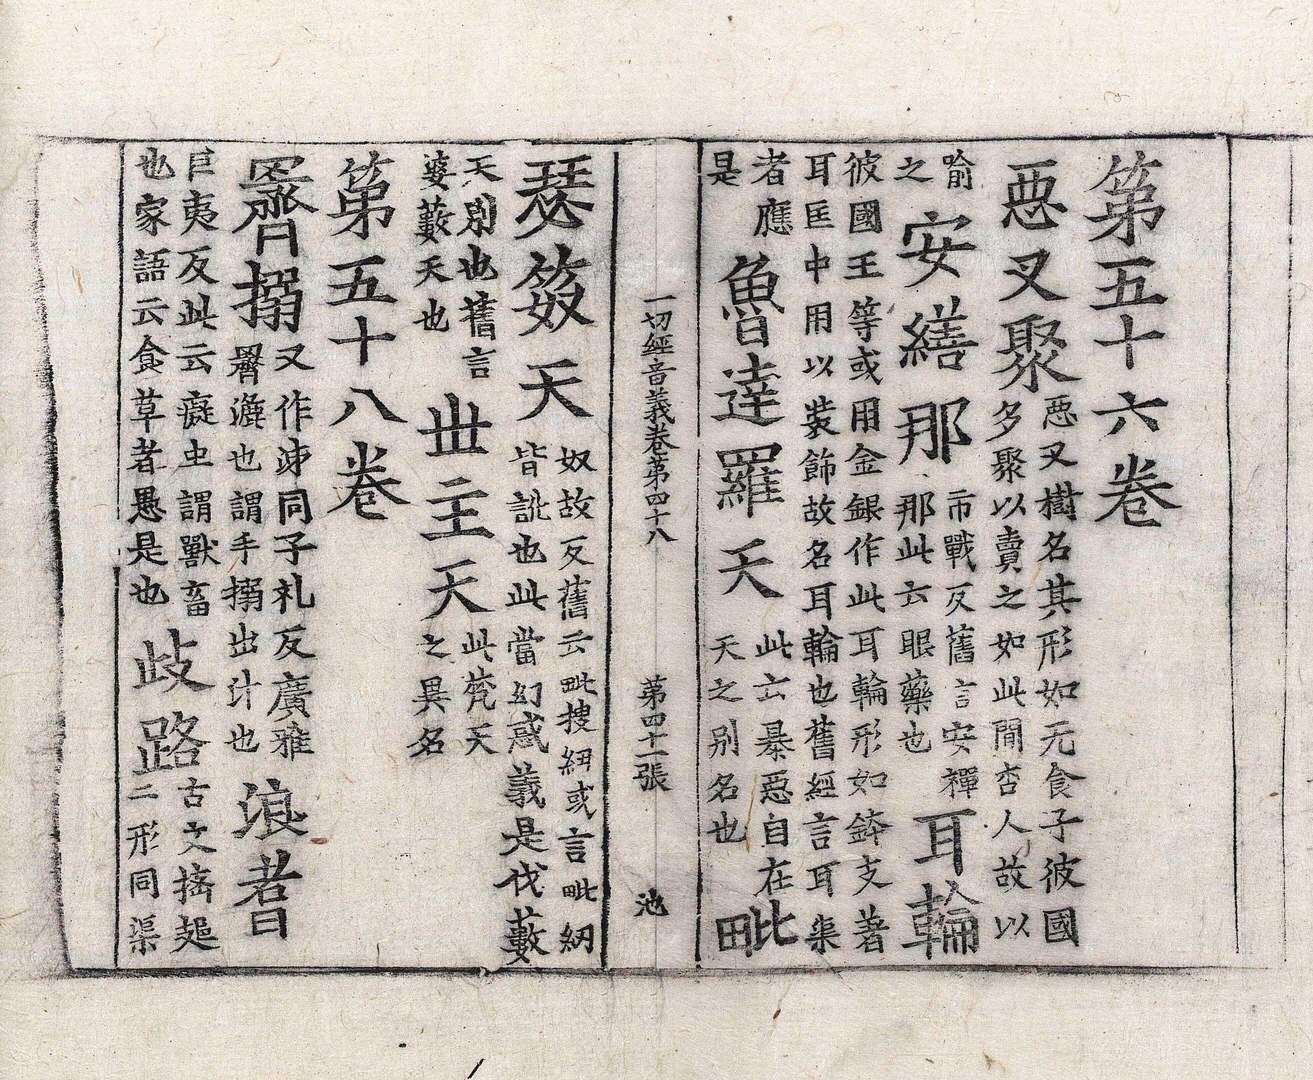 第五十六卷
惡叉聚惡叉樹名其形如无食子彼國多聚以賣之如此閒杏人故以
喻之安繕那市戰反舊言安禪那此云眼藥也耳輪
彼國王等或用金銀作此耳輪形如鉢支著耳匡中用以裝飾故名耳輪也舊經言耳渠
者應是魯達羅天此云暴惡自在天之別名也毗
一切經音義卷第四十八 第四十一張 池
瑟笯天奴故反舊云毗搜紐或言毗紉皆訛也此當幻惑義是伐藪
天別也舊言婆藪天也世主天此梵天之異名
第五十八卷
搦又作泲同子礼反廣雅漉也謂手搦出汁也浪耆
巨夷反此云癡虫謂獸畜也家語云食草者愚是也歧路古文二形同渠